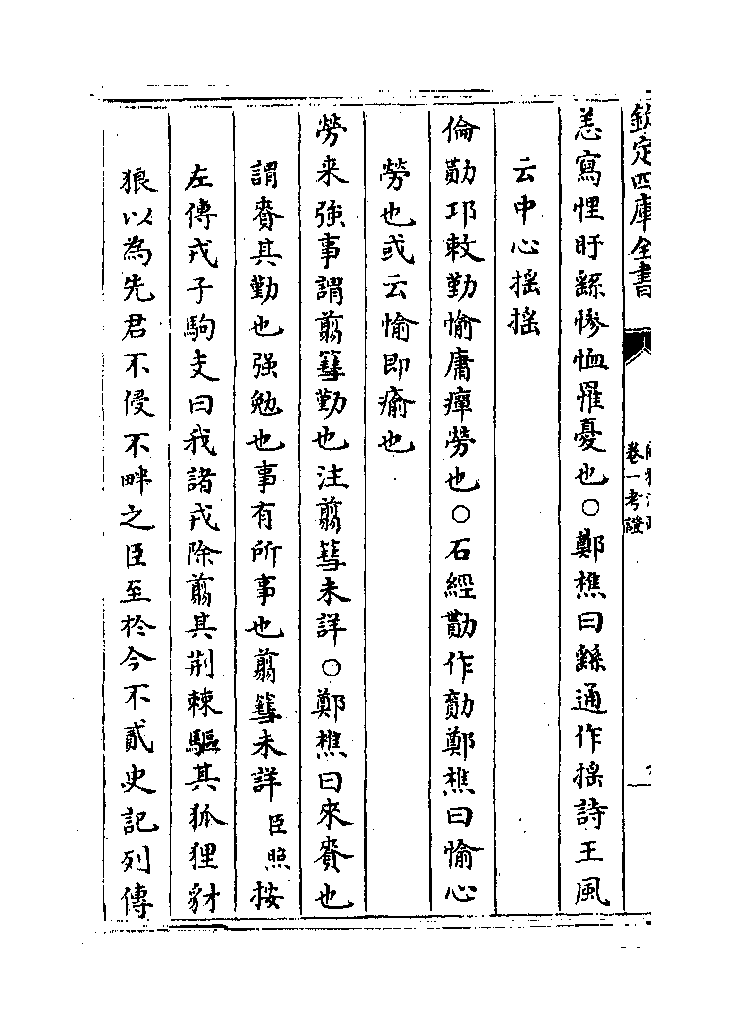 欽定四庫全書
卷一考證
恙寫悝盱繇慘恤罹憂也○鄭樵曰繇通作揺詩王風
云中心揺揺
倫勩邛敕勤愉庸癉勞也○石經勩作勚鄭樵曰愉心
勞也或云愉即瘉也
勞来強事謂翦篲勤也注翦篲未詳○鄭樵曰來賚也
謂賚其勤也强勉也事有所事也翦篲未詳臣照按
左傳戎子駒支曰我諸戎除翦其荆棘驅其狐狸豺
狼以為先君不侵不畔之臣至於今不貳史記列傳